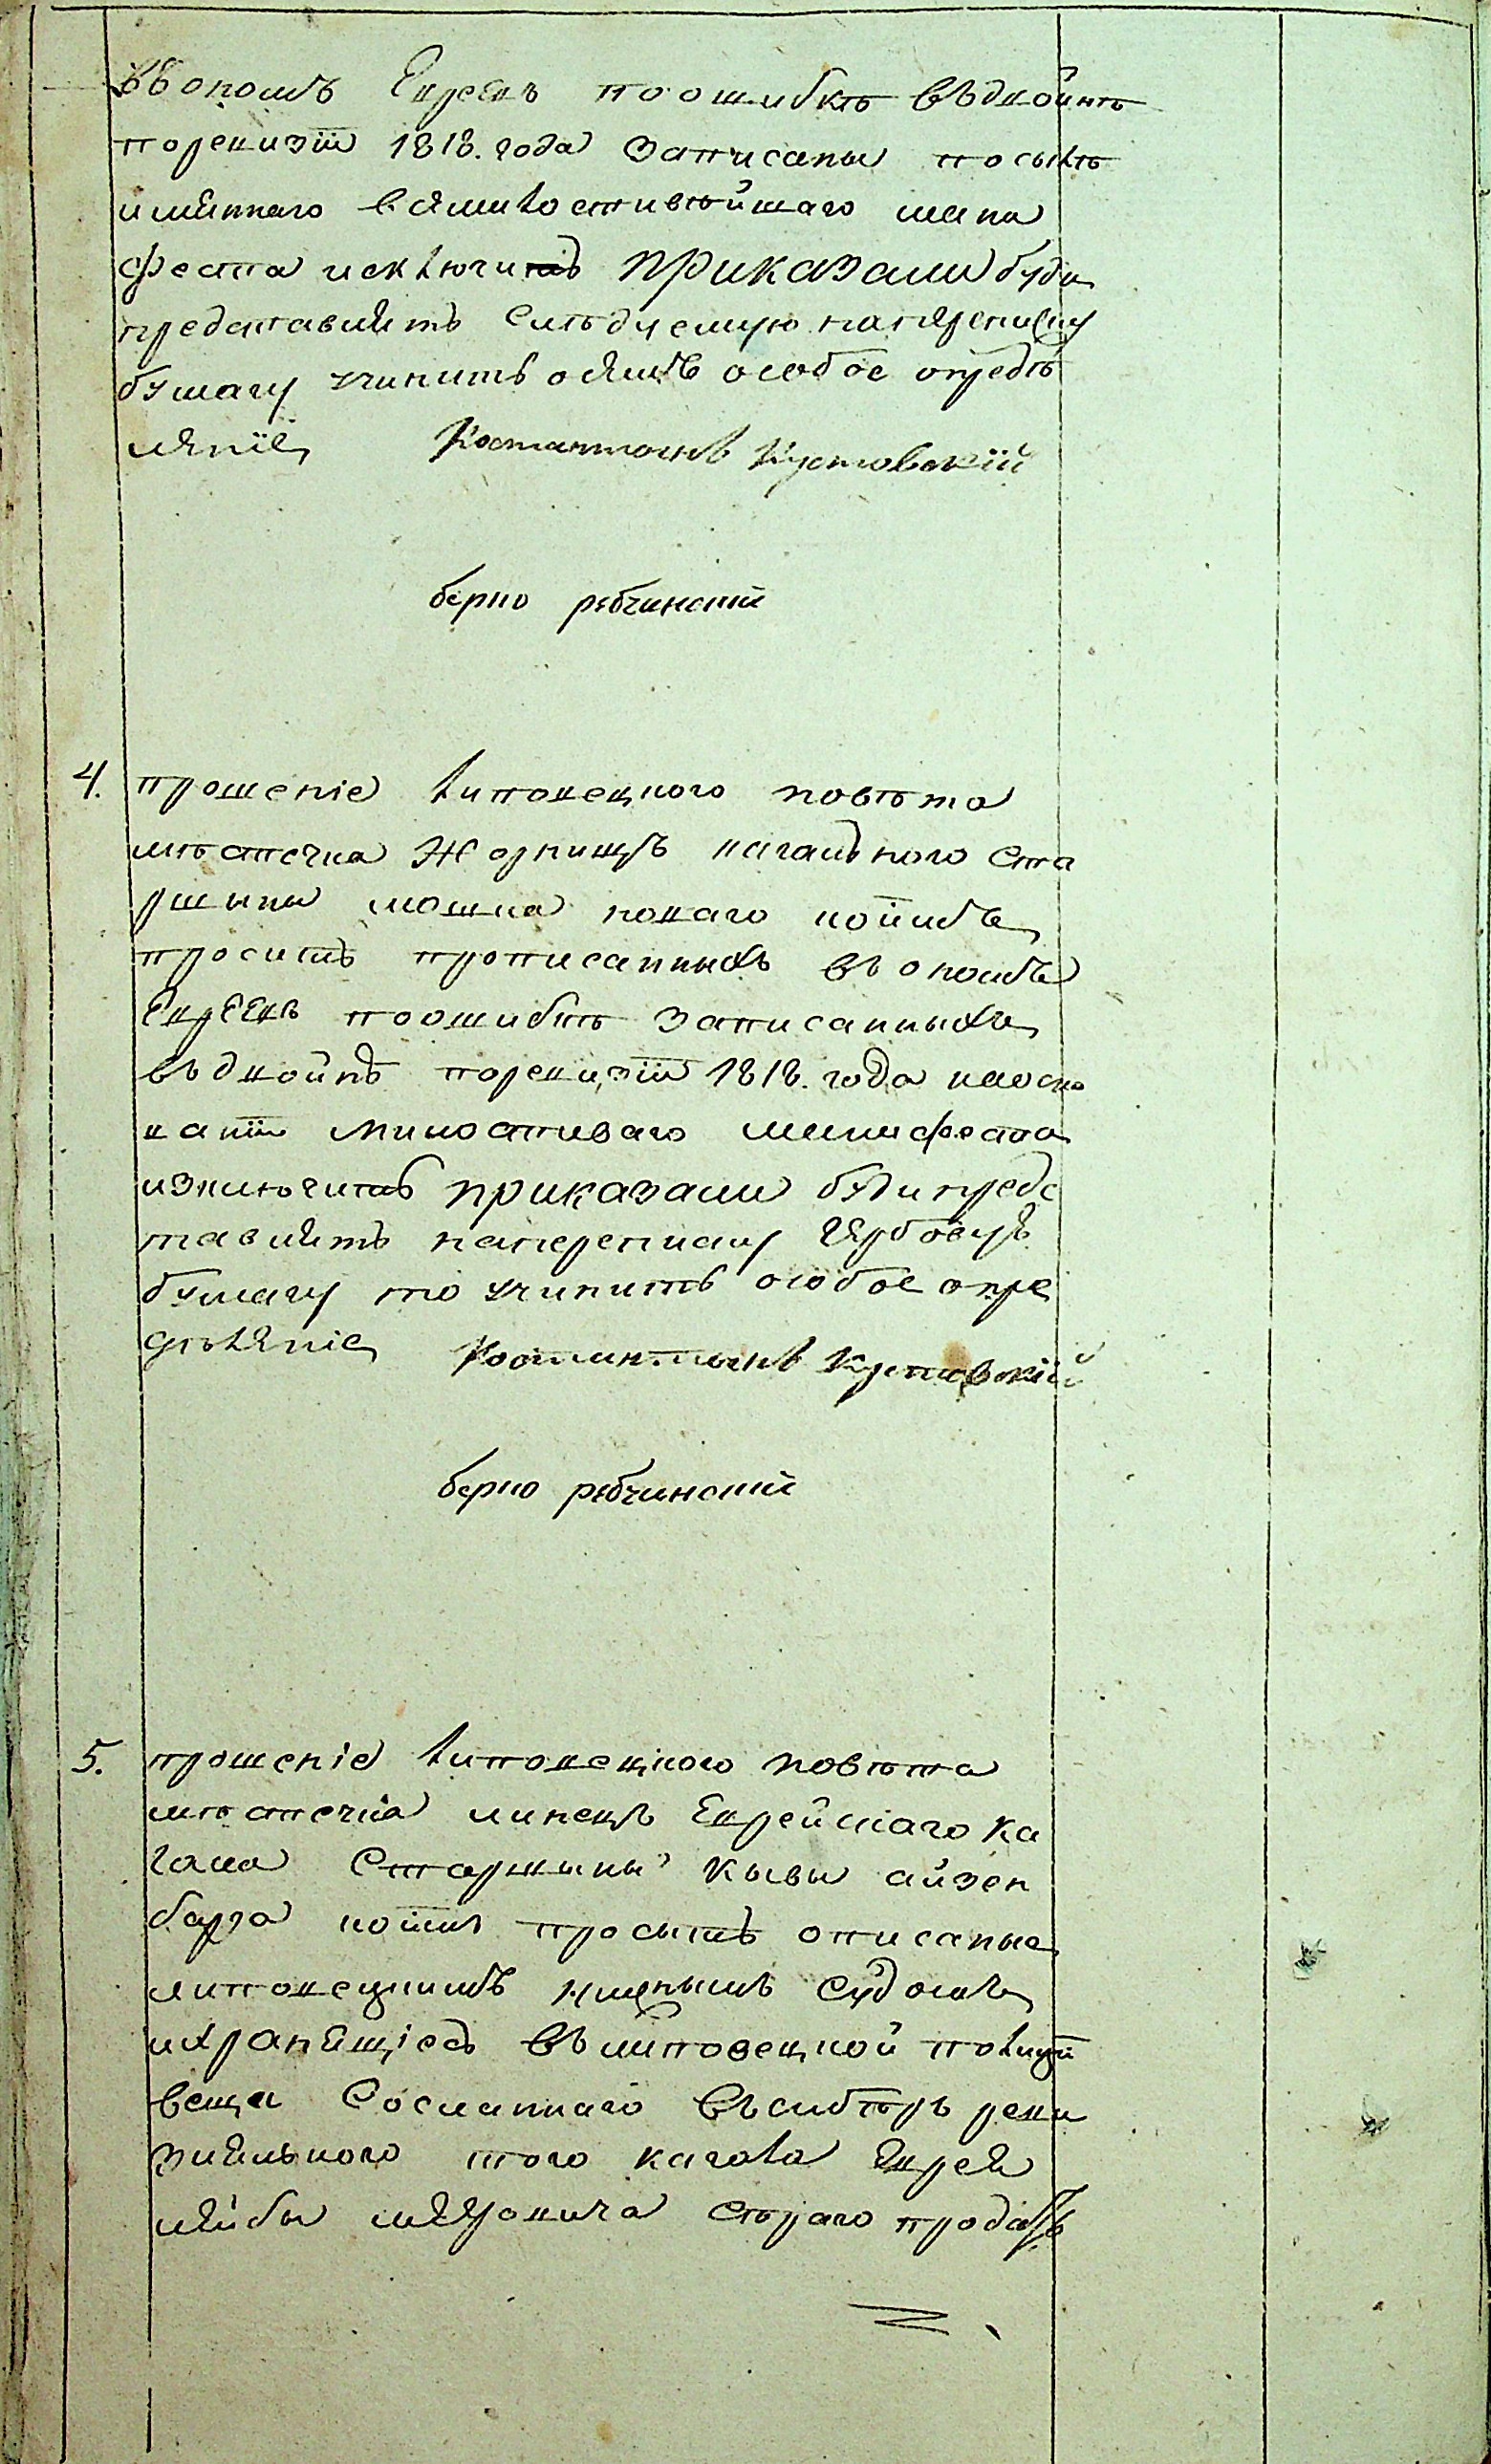 въономъ Евреевъ поошибкѣ въдвойнѣ
поревизіи 1818. года записаны посылѣ
имяннаго всямилостивѣйшаго мани
феста исключить приказали буди
представитъ слѣдуемую напереписку
бумагу учинить обямъ особое опредѣ
лѣніе Костантинъ Кустовскій
берко ребчинскій
4. прошеніе липовецкого повѣта
мѣстечка Жорнищъ кагального ста
ршыны мошка новаго коимъ
проситъ прописанныхъ въономъ
Евреевъ поошибкѣ записанныхъ
въдвойнѣ поревизіи 1818. года наосно
ваніи милостиваго манифеста
изключить приказали буди предс
тавитъ напереписку гербовую
бумагу то учинить особое опре
дѣлѣніе Костантинъ Кустовскій
берко ребчинскій
5. прошеніе липовецкого повѣта
мѣстечка линецъ Еврейскаго ка
гала Старшыны кывы айзен
барга коимъ просытъ описаные
липовецкимъ нижнымъ судомъ
ихранящіесь въ липовецкой полиціи
вещи Сосланнаго въсибѣръ реви
зияльного того кагала Еврея
лейбы меяровича Стараго продать